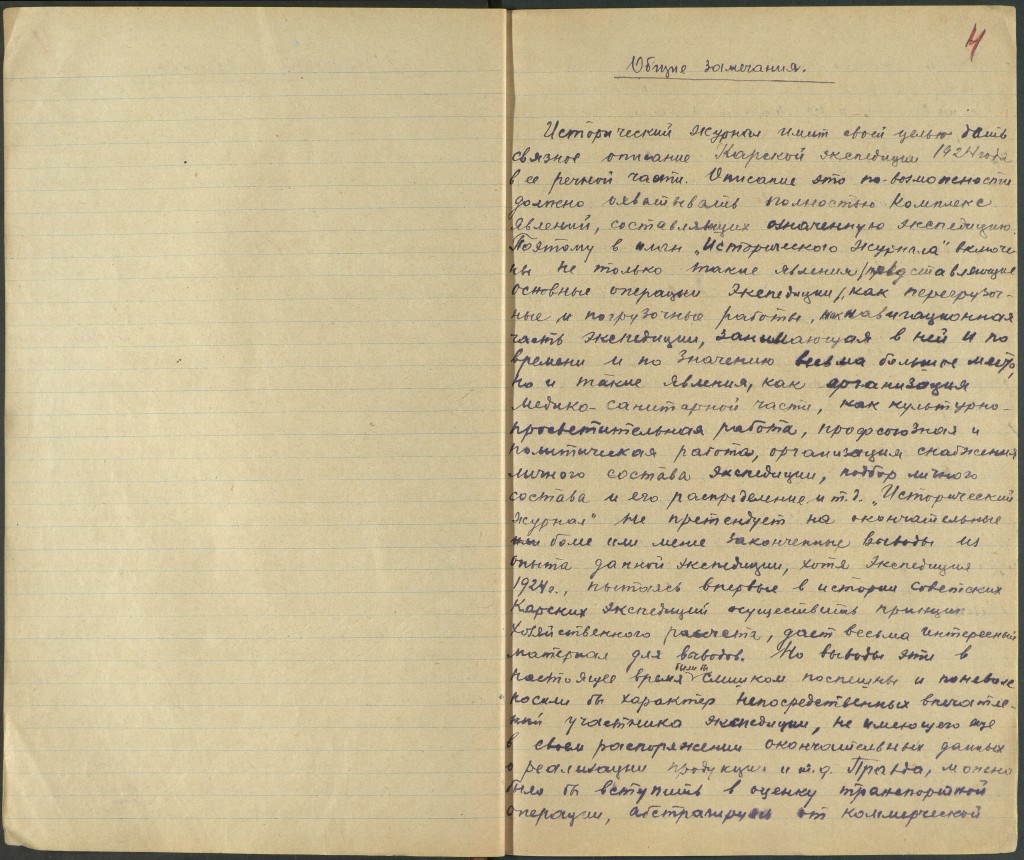 4
Общие замечания.
Исторический журнал имеет своей целью дать
связное описание Карской экспедиции 1924 года
в ее речной части. Описание это по-возможности
должно охватывать полностью комплекс
явлений, составляющих означенную экспедицию.
Поэтому в план „Исторического журнала" включе-
ны не только такие явления /представляющие
основные операции экспедиции/, как перегрузоч-
ные и погрузочные работы, навигационная
часть экспедиции, занимающая в ней и по
времени и по значению весьма большое место,
но и такие явления, как организация
медико-санитарной части, как культурно-
просветительная работа, профсоюзная и
политическая работа, организация снабжения
личного состава экспедиции, подбор личного
состава и его распределение и т.д. „Исторический
журнал" не претендует на окончательные
более или мене законченные выводы из
опыта данной экспедиции, хотя экспедиция
1924г., пытаясь впервые в истории советских
Карских экспедиций осуществить принцип
хозяйственного расчета, дает весьма интересный
материал для выводов. Но выводы эти в
настоящее время были бы слишком поспешны и поневоле
носили бы характер непосредственных впечатле-
ний участника экспедиции, не имеющего еще
в своем распоряжении окончательных данных
о реализации продукции и т.д. Правда, можно
было бы вступить в оценку транспортной
операции, абстрагируясь от коммерческой